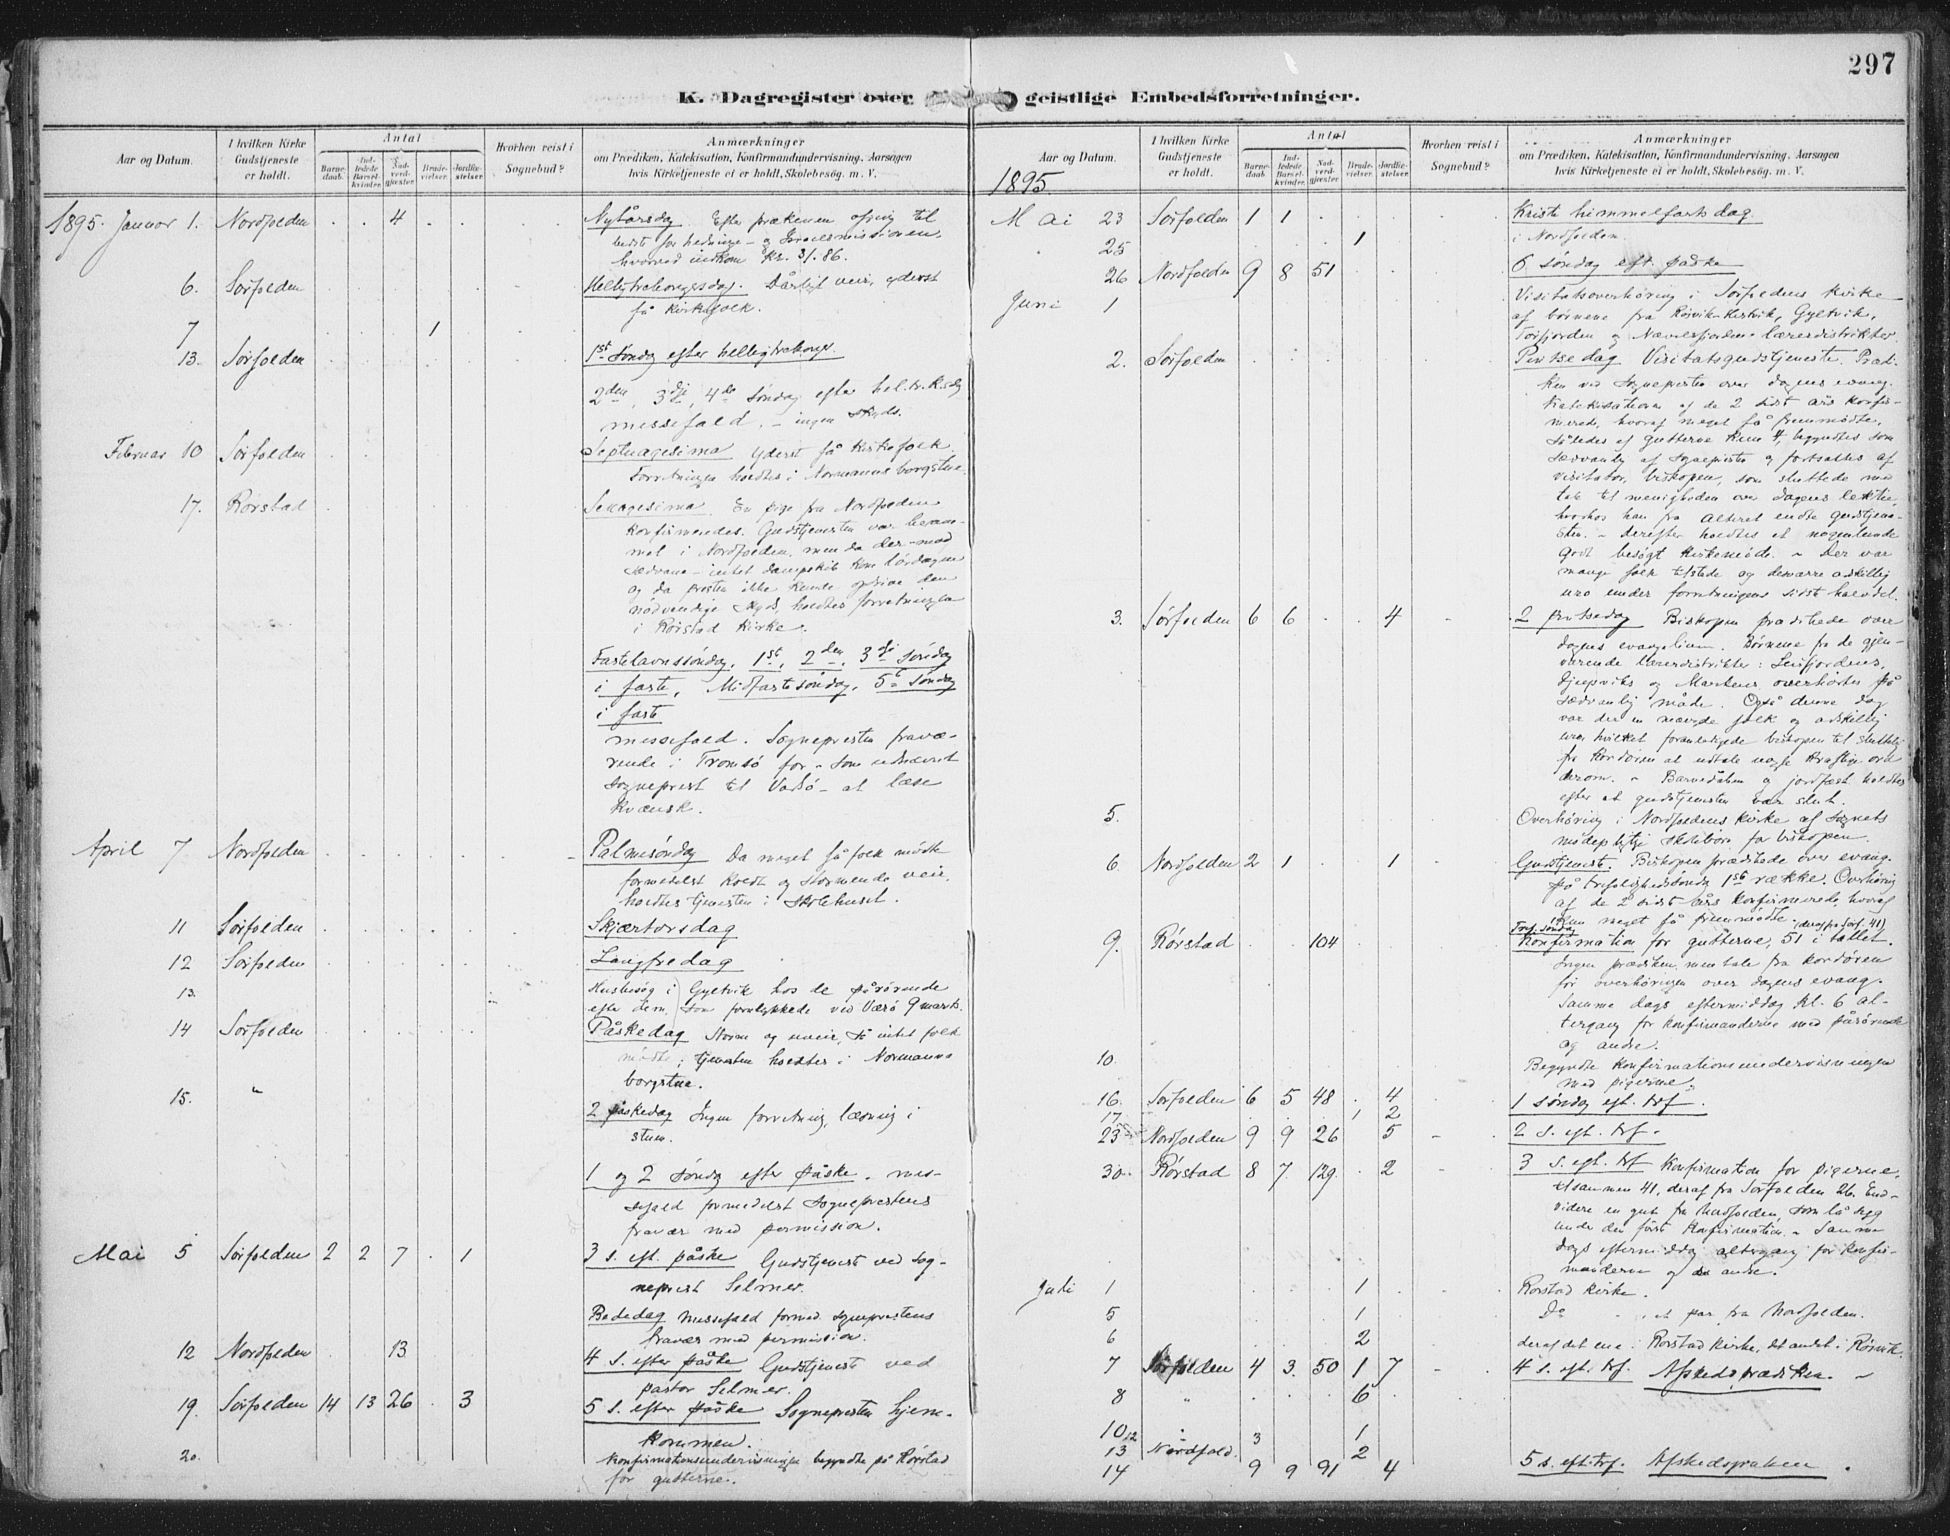 297
K. Dagregister over geistlige Embedsforretninger.
Aar og Datum.
I hvilken Kirke Gudstjeneste er holdt.
Antal
Barnedaab.
Indledede Barselkvinder.
Nadverdgjester
Brudevielser.
Jordfæstelser.
Hvorhen reist i Sognebud?
Anmærkninger
om Prædiken, Katekisation, Konfirmandundervisning, Aarsagen
hvis Kirketjeneste ei er holdt, Skolebesøg. m. V.
1895. Januar 1. Nordfolden 4 Nytårsdag. Efter prækenen ofring til
bedste for hedninge- og Israelsmissionen,
hvorved indkom Kr. 31.86.
6. Sørfolden Helligtrekongersdag. Dårligt veir, yderst
få kirkefolk.
7 1
13. Sørfolden 1st søndag efter helligtrekonger.
2den, 3dje, 4de søndag efter hel.tr.k.dag
messefald, - ingen skyds.
Februar 10 Sørfolden Septuagesima yderst få kirkefolk.
Forretningen holdtes i Normanns borgstue.
17. Rørstad Sexagesima. En pige fra Nordfolden
konfirmeredes. Gudstjenesten var beram-
met i Nordfolden, men da der - mod
sædvane - intet dampskib kom lørdagen
og da presten ikke kunde opdrive den
nødvendige skyds, holdtes forretningen
i Rørstad kirke.
Fastelavnssøndag, 1st, 2den, 3dje søndag
i faste, Midfastesøndag, 5te søndag
i faste
messefald. Sognepresten fravæ-
rende i Tromsø for - som udnævnt
sogneprest til Vadsø - at læse
kvænsk.
April 7 Nordfolden Palmesøndag Da meget få folk mødte
formedelst koldt og stormende veir,
holdtes tjenesten i skolehuset.
11 Sørfolden Skjærtorsdag
12 Sørfolden Langfredag
13. Husbesøg i Gyltvik hos de pårørende
efter dem, som forulykkede ved Værø 9 marts.
14 Sørfolden Påskedag Storm og uveir, så intet folk
mødte; tjenesten holdtes i Normanns
borgstue.
15. " 2 påskedag Ingen forretning, læsning i
stuen.
1 og 2 søndag efter påske, mes-
sefald formedelst sogneprestens
fravær med permission.
Mai 5 Sørfolden 2 2 7 1 3 s. eft. påske Gudstjenest ved sog-
neprest Selmer.
Bededag messefald formed. sogneprestens
fravær med permission.
12 Nordfolden 13 4 s. efter påske Gudstjenest ved
pastor Selmer.
19. Sørfolden 14 13 26 3 5 s. efter påske Sognepresten hjem-
kommen.
20. Konfirmationsundervisningen begyndte på Rørstad
for gutterne.
Aar og Datum.
1895
I hvilken Kirke Gudstjeneste er holdt.
Antal
Barnedaab
Indledede Barselkvinder.
Nadverdgjester
Brudevielser.
Jordfæstelser.
Hvorhen reist i Sognebud?
Anmærkninger
om Prædiken, Katekisation, Konfirmandundervisning, Aarsagen
hvis Kirketjeneste ei er holdt, Skolebesøg. m. V.
Mai 23 Sørfolden 1 1 Kristi himmelfartsdag.
25 1 i Nordfolden.
26 Nordfolden 9 8 51 6 søndag eft. påske
Juni 1 Visitatsoverhøring i Sørfoldens kirke
af børnene fra Gyltvik,
Torfjorden og lærerdistrikter.
2. Sørfolden Pintsedag Visitatsgudstjeneste. Prædi-
ken ved sognepresten over dagens evang.
Katekisationen af de 2 sidst års konfir-
merede, hvoraf meget få fremmødte,
således af gutterne kun 4, begyndtes som
sædvanlig af sognepresten og fortsattes af
visitator, biskopen, som sluttede med
tale til menigheden over dagens lektie,
hvorhos han fra alteret endte gudstjene-
sten. - derefter holdtes et nogenlunde
godt besøgt kirkemøde. - Der var
mange folk tilstede og desværre adskillig
uro under forretningens sidst halvdel.
3. Sørfolden 6 6 4 2 pintsedag Biskopen prædikede over
dagens evangelium. Børnene fra de gjen-
værende lærerdistrikter: Leirfjordens,
Djupviks og overhørtes på
sædvanlig måde. Også denne dag
var der en mængde folk og adskillig
uro, hvilket foranledigede biskopen til sluttelig
fra kordøren at udtale nogle kraftige ord
derom. - Barnedåben og jordfæst. holdtes
efter at gudstjenesten var slut.
5. Overhøring i Nordfoldens kirke af sognets
mødepligtige skolebørn for biskopen.
6 Nordfolden 2 1 1 Gudstjeneste. Biskopen prædikede over evang.
på trefoldighedssøndag 1st række. Overhøring
af de 2 sidst års konfirmerede, hvoraf
kun meget få fremmødte.
9. Rørstad 104 Tref. søndag Konfirmation for gutterne, 51 i tallet. (deraf fra Sørf. 41)
Ingen prædiken, men tale fra kordøren
før overhøringen over dagens evang.
Samme dags eftermiddag kl. 6 al-
tergang for konfirmanderne med pårørende
og andre.
10. Begyndte konfirmationsundervisningen
med pigerne.
16. Sørfolden 6 5 48 4 1 søndag eft. tref.
17 1 2
23 Nordfolden 9 9 26 5 2 s. eft. tref.
30. Rørstad 8 7 129 2 3 s. eft. tref Konfirmation for pigerne,
tilsammen 41, deraf fra Sørfolden 26. End-
videre en gut fra Nordfolden, som lå syg
under den først konfirmation. - Samme
dags eftermiddag altergang for konfir-
manderne og andre.
Juli 1 1 Rørstad kirke.
5 1 Do et par fra Nordfolden.
6 2 deraf det ene i Rørstad kirke, det andet i Rørvik.
7 Sørfolden 4 3 50 1 7 4 s. eft. tref. Afskedsprædiken.
8 " 6
10 12 3 1
13 Nordfold. 2
14 9 9 91 4 5 s. eft. tref. Afskedspræken.